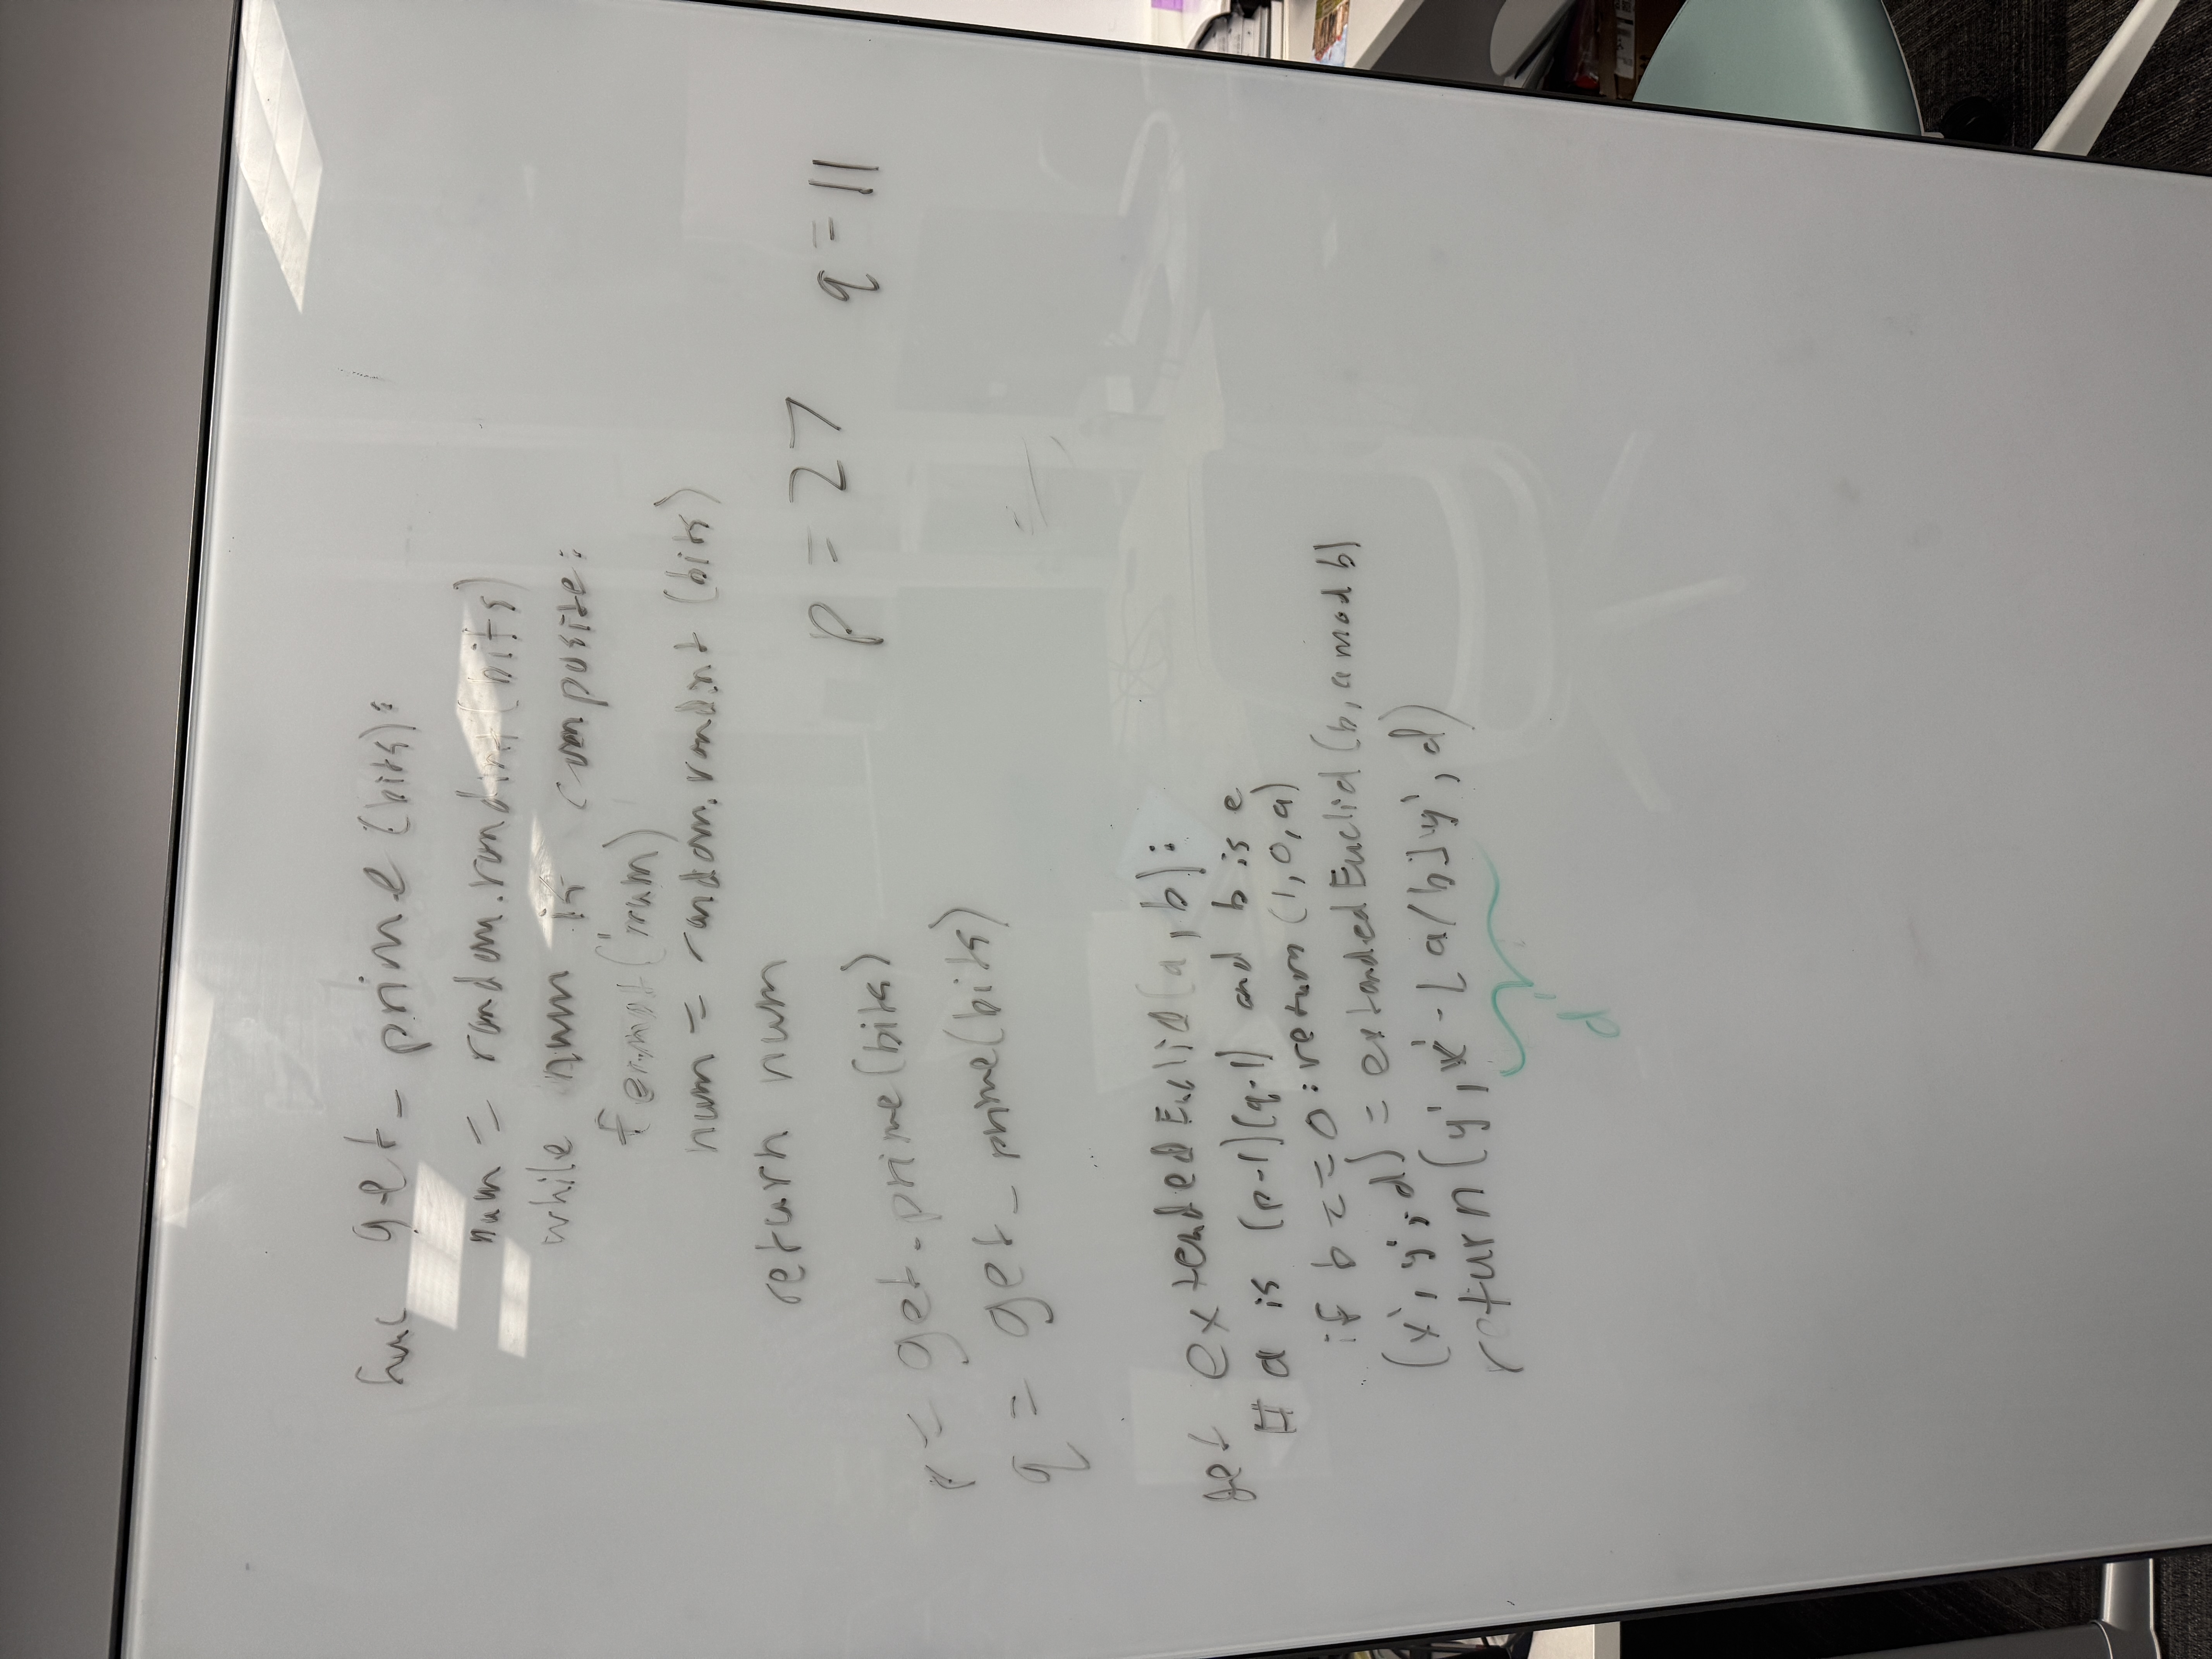 func get_prime (bits):
num = random.randint(bits)
while num is composite:
fermat(num)
num = random.randint (bits)
return num
p = 27 q = 11
p = get_prime(bits)
q = get_prime(bits)
def extendedEuclid(a, b):
# a is (p-1)(q-1) and b is e
if b == 0: return (1, 0, a)
(x', y', d) = extendedEuclid (b, a mod b)
return (y', x' - ⌊a/b⌋y', d)
d'